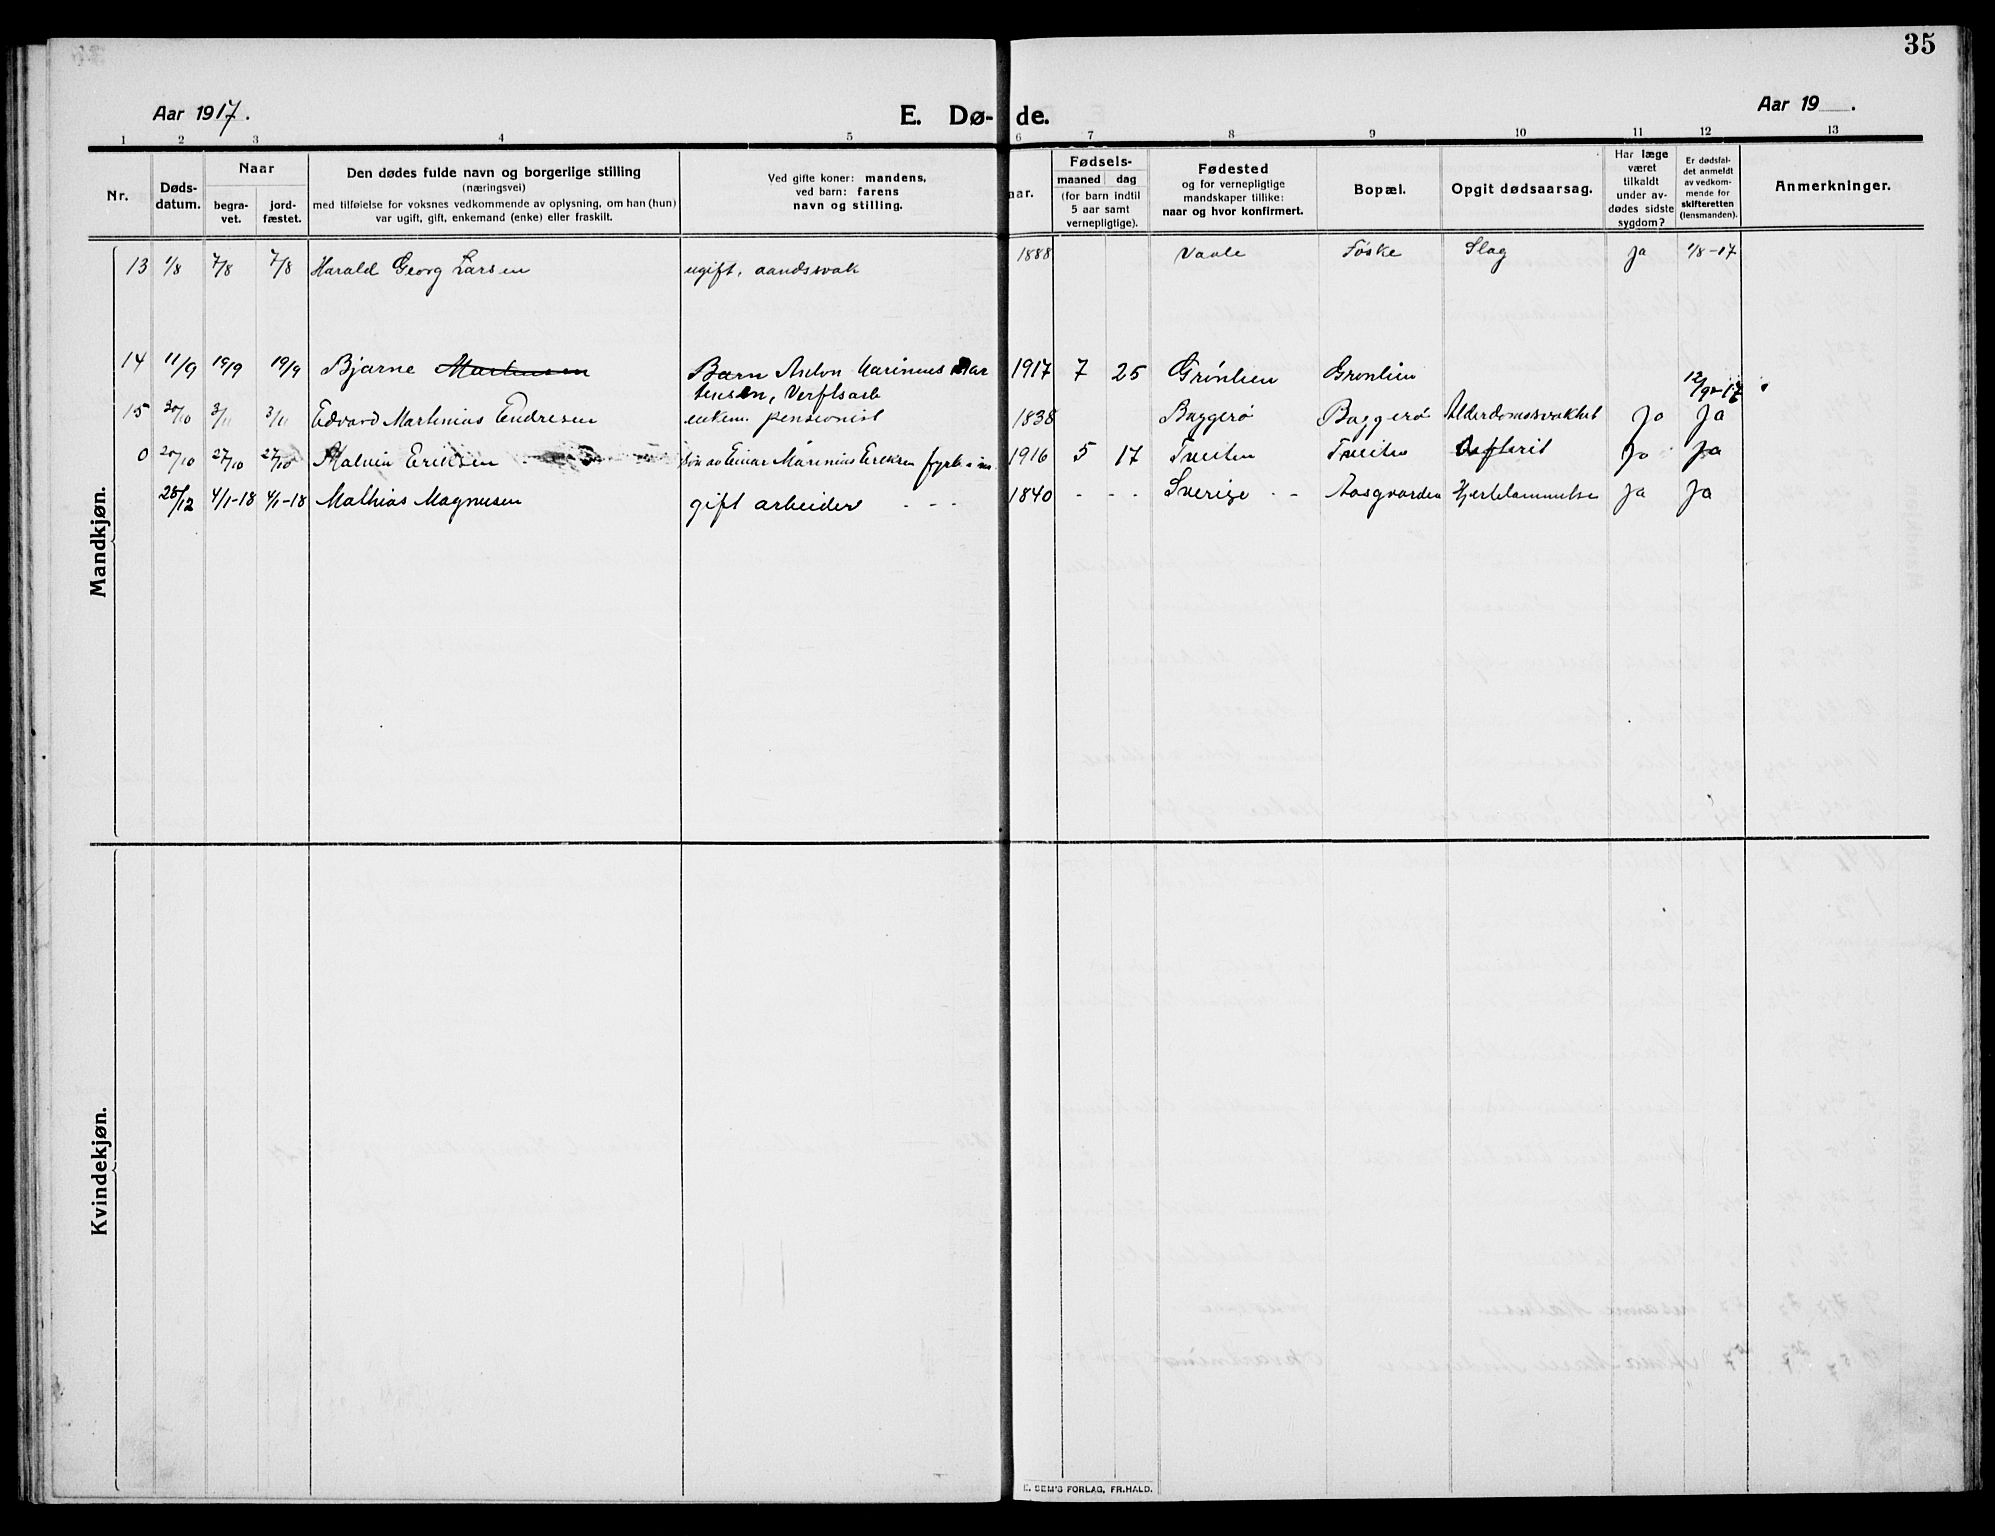 35
Aar 1917.
E. Dø-
de.
Aar 19 .
1 2 3 4 5 6 7 8 9 10 11 12 13
Nr.
Døds-
datum.
Naar
begra-
vet.
jord-
fæstet.
Den dødes fulde navn og borgerlige stilling
(næringsvei)
med tilføielse for voksnes vedkommende av oplysning, om han (hun)
var ugift, gift, enkemand (enke) eller fraskilt.
Ved gifte koner: mandens,
ved barn: farens
navn og stilling.
aar.
Fødsels-
maaned dag
(for barn indtil
5 aar samt
vernepligtige).
Fødested
og for vernepligtige
mandskaper tillike:
naar og hvor konfirmert.
Bopæl.
Opgit dødsaarsag.
Har læge
været
tilkaldt
under av-
dødes sidste
sygdom?
Er dødsfal-
det anmeldt
av vedkom-
mende for
skifteretten
(lensmanden).
Anmerkninger.
Mandkjøn.
13 1/8 7/8 7/8 Harald Georg Larsen ugift, aandssvak 1888 Vaale Föske Slag Ja 1/8-17
14 11/9 19/9 19/9 Bjarne Martinsen Barn Anton Marinius Mar 1917 7 25 Grønlien Grønlien 12/9-17
tensen, Verftsarb
15 30/10 3/11 3/11 Edvard Martinius Endresen enkem. pensionist 1838 Baggerø Baggerø Alderdomssvakhet Jo Ja
0 20/10 27/10 27/10 Halvin Eriksen Søn av Einar Marinius Eriksen fyrb 1916 5 17 Tveiten Tveiten Jo Ja
28/12 4/1-18 4/1-18 Mathias Magnusen gift arbeider - - - 1840 - - - Sverige - - Aasgaarden Hjertelammelse Ja Ja
Kvindekjøn.
E. SEM'S FORLAG, FR.HALD.